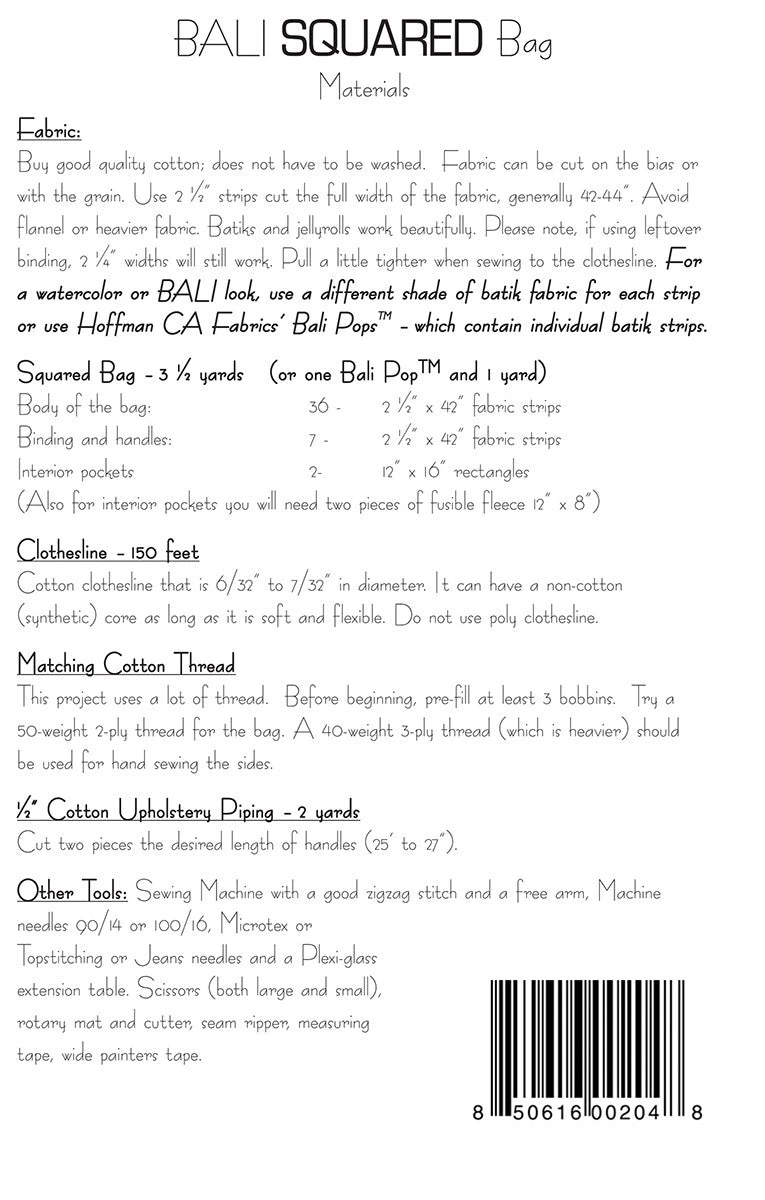 BALI SQUARED Bag
Materials
Fabric:
Buy good quality cotton; does not have to be washed. Fabric can be cut on the bias or
with the grain. Use 2 ½" strips cut the full width of the fabric, generally 42-44". Avoid
flannel or heavier fabric. Batiks and jellyrolls work beautifully. Please note, if using leftover
binding, 2 ¼" widths will still work. Pull a little tighter when sewing to the clothesline. For
a watercolor or BALI look, use a different shade of batik fabric for each strip
or use Hoffman CA Fabrics' Bali Pops™ - which contain individual batik strips.
Squared Bag - 3 ½ yards (or one Bali Pop™ and 1 yard)
Body of the bag: 36 - 2 ½" x 42" fabric strips
Binding and handles: 7 - 2 ½" x 42" fabric strips
Interior pockets 2- 12" x 16" rectangles
(Also for interior pockets you will need two pieces of fusible fleece 12" x 8")
Clothesline - 150 feet
Cotton clothesline that is 6/32" to 7/32" in diameter. It can have a non-cotton
(synthetic) core as long as it is soft and flexible. Do not use poly clothesline.
Matching Cotton Thread
This project uses a lot of thread. Before beginning, pre-fill at least 3 bobbins. Try a
50-weight 2-ply thread for the bag. A 40-weight 3-ply thread (which is heavier) should
be used for hand sewing the sides.
½" Cotton Upholstery Piping - 2 yards
Cut two pieces the desired length of handles (25' to 27").
Other Tools: Sewing Machine with a good zigzag stitch and a free arm, Machine
needles 90/14 or 100/16, Microtex or
Topstitching or Jeans needles and a Plexi-glass
extension table. Scissors (both large and small),
rotary mat and cutter, seam ripper, measuring
tape, wide painters tape.
8 50616 00204 8